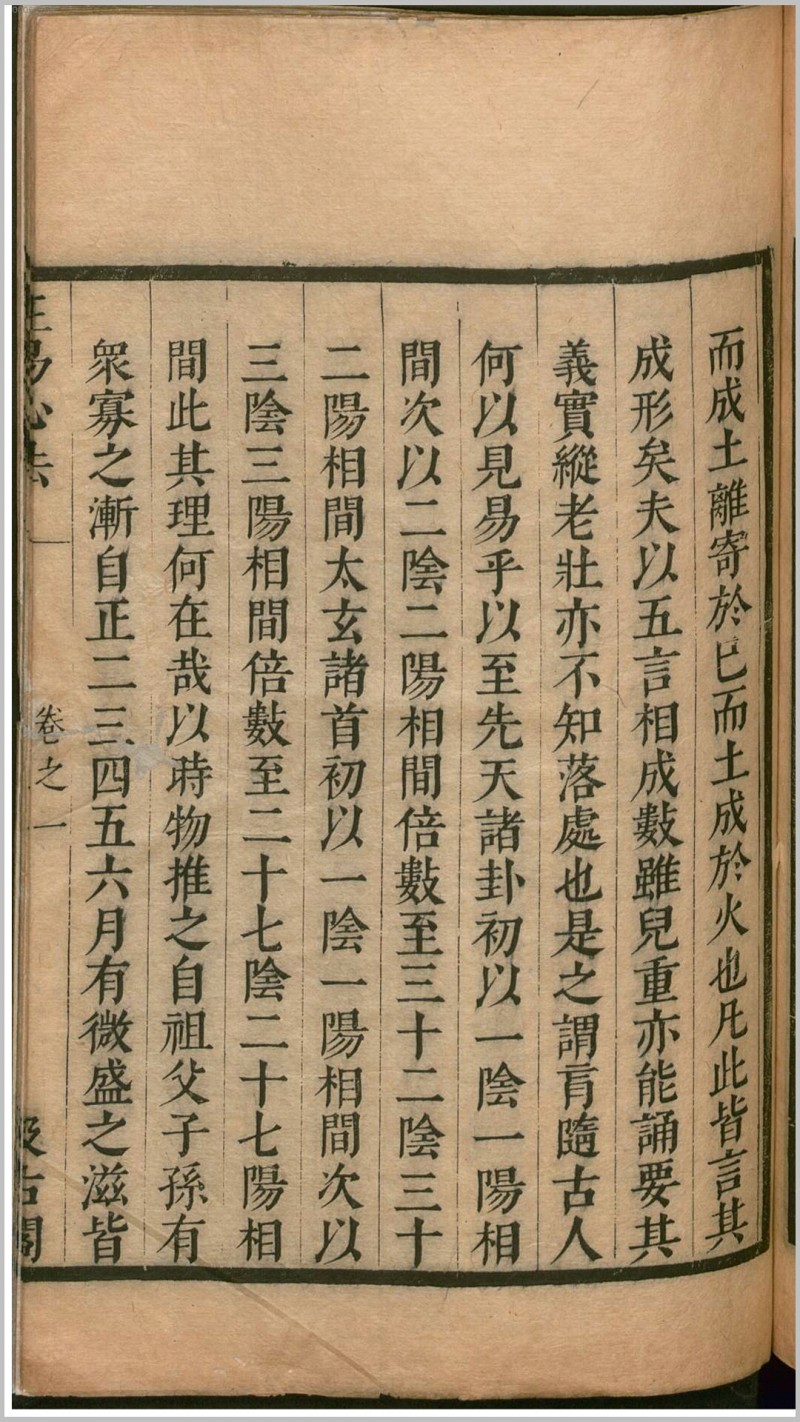 而成土離寄於巳而土成於火也凡此皆言其
成形矣夫以五言相成數雖兒重亦能誦要其
義實縱老壯亦不知落處也是之謂肓隨古人
何以見易乎以至先天諸卦初以一陰一陽相
間次以二陰二陽相間倍數至三十二陰三十
二陽相間太玄諸首初以一陰一陽相間次以
三陰三陽相間倍數至二十七陰二十七陽相
間此其理何在哉以時物推之自祖父子孫有
衆寡之漸自正二三四五六月有微盛之滋皆
正易心法
卷之一
汲古閣